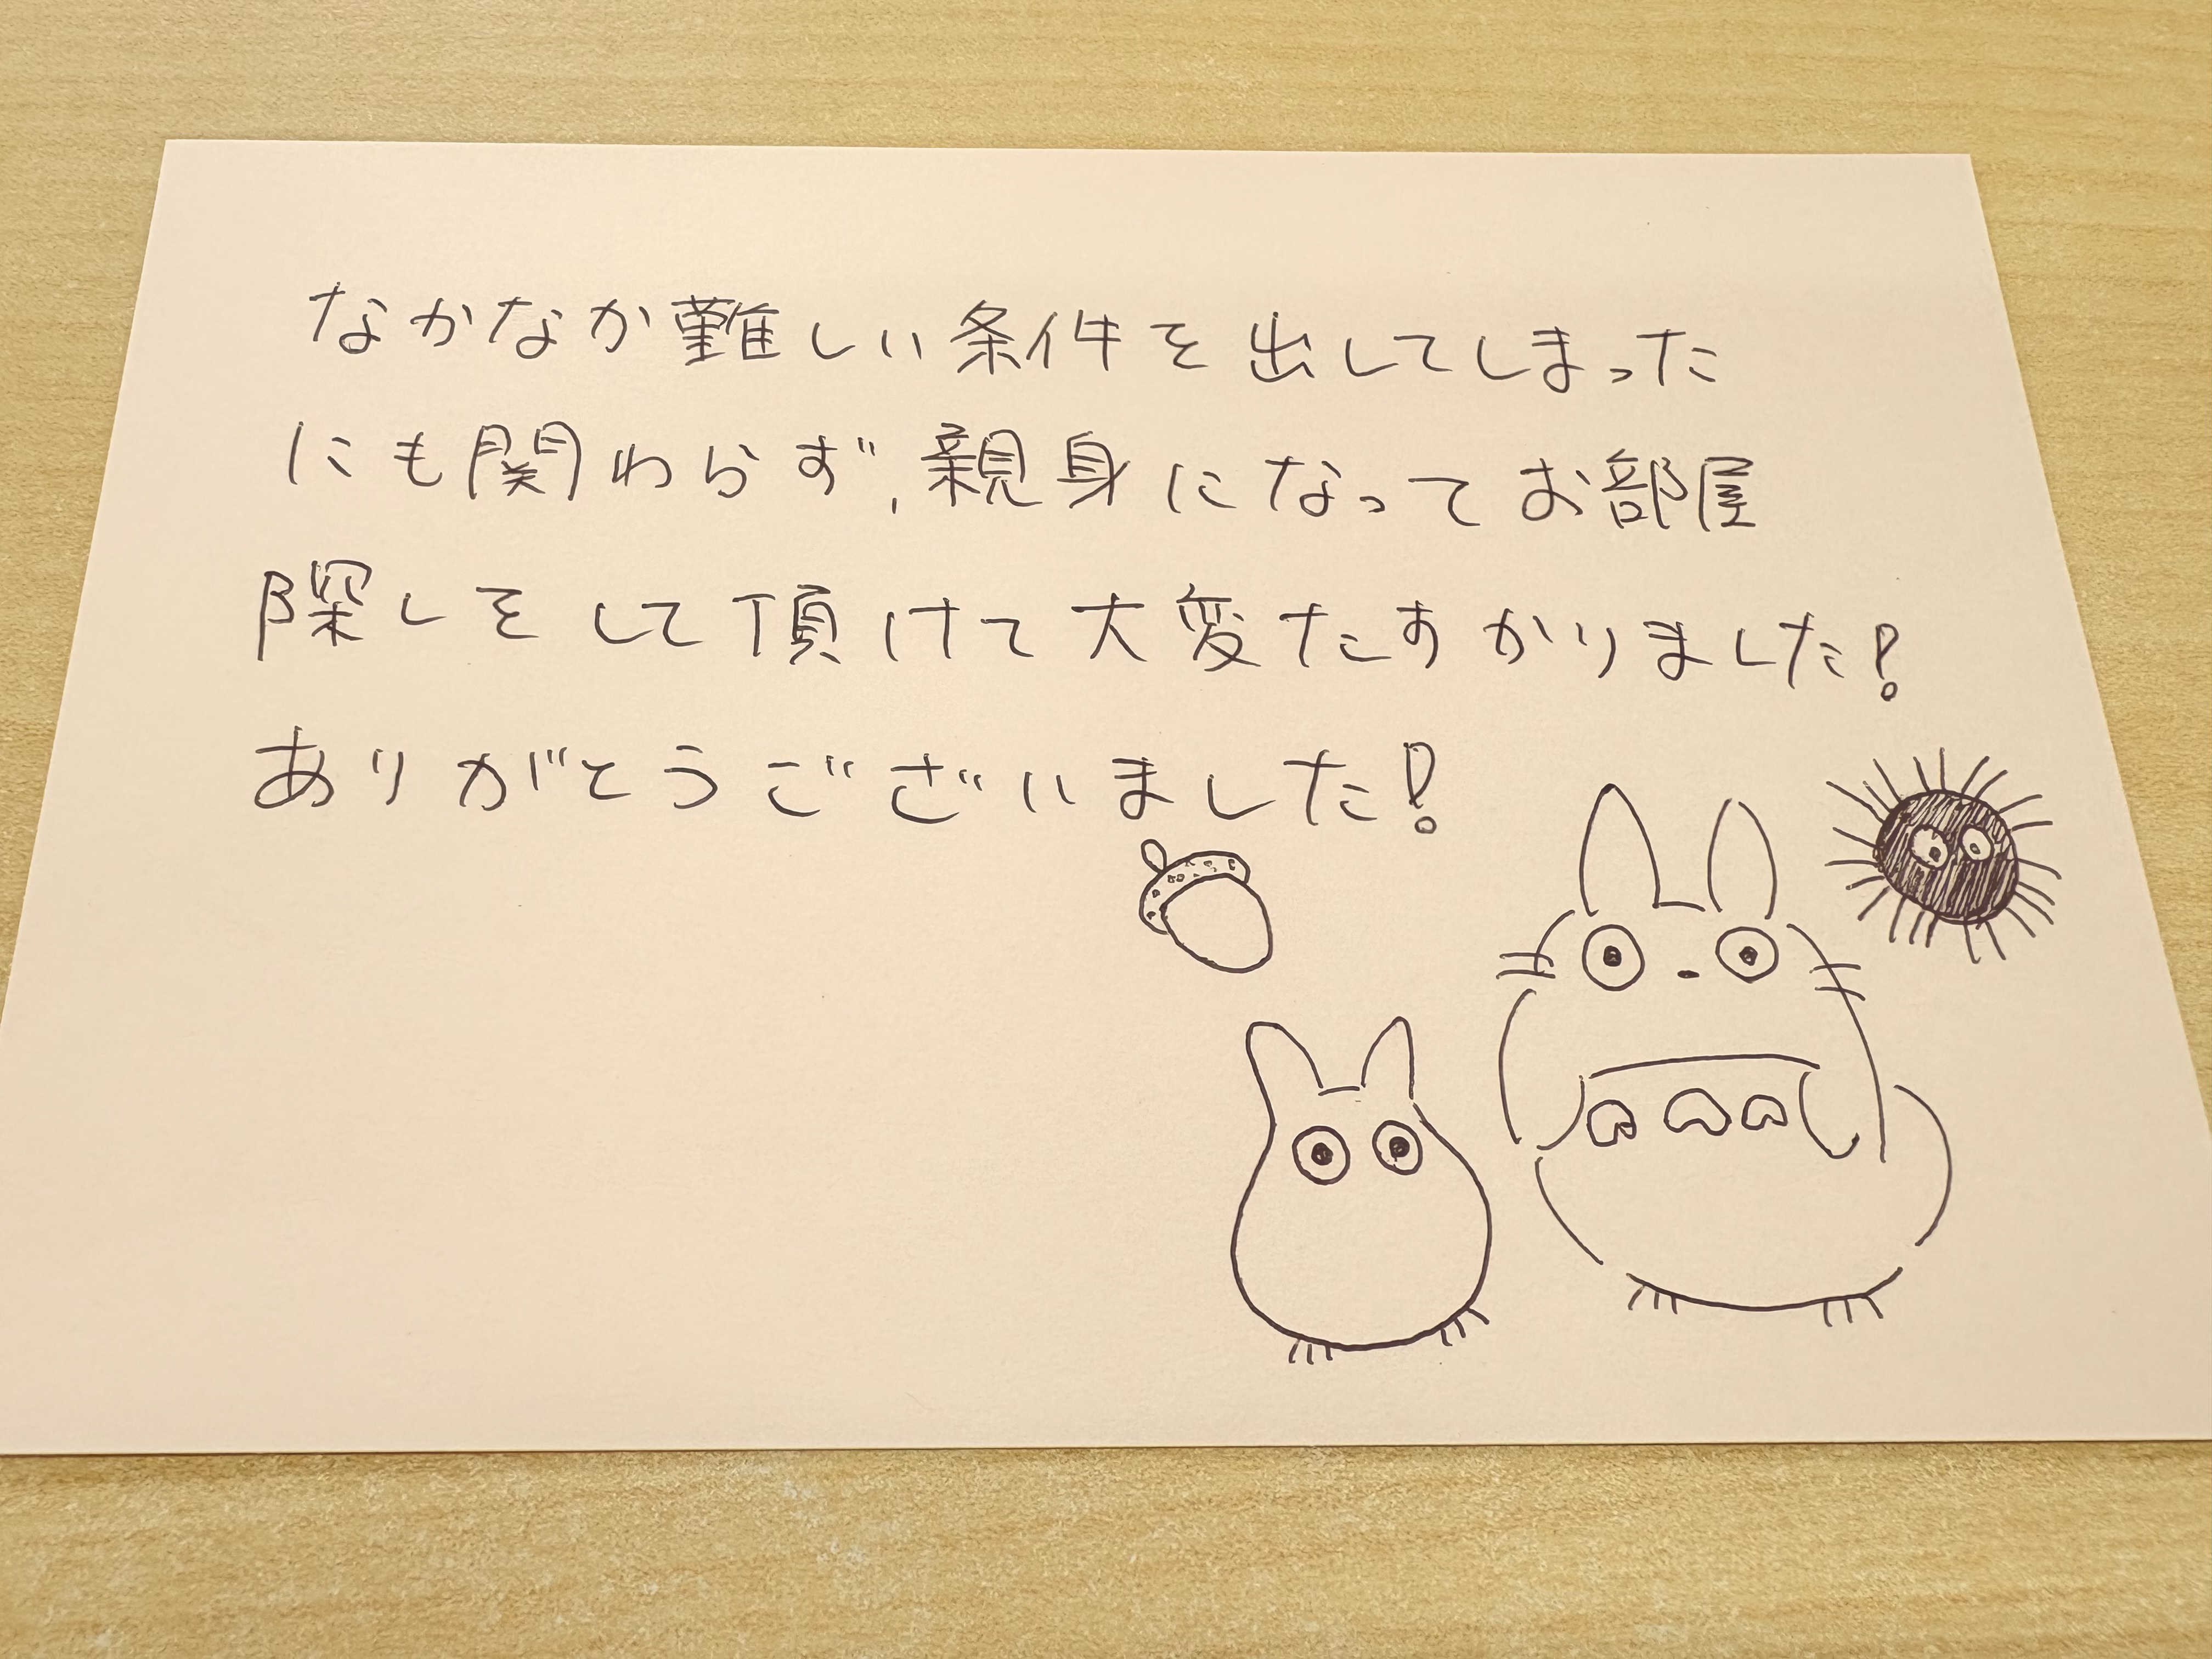 なかなか難しい条件を出してしまった
にも関わらず、親身になってお部屋
探しをして頂けて大変たすかりました!
ありがとうございました!